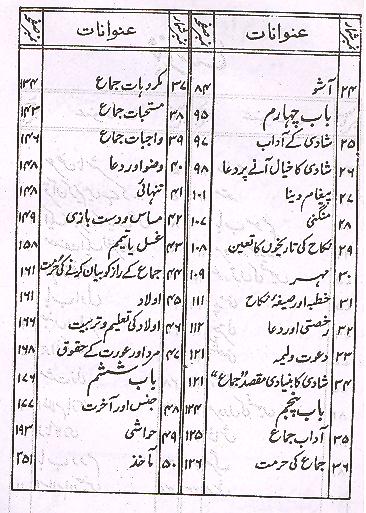 نمبر شمار عنوانات نمبر صفحہ
۲۴ آنسو ۸۴
باب چہارم ۹۵
۲۵ شادی کے آداب ۹۷
۲۶ شادی کا خیال آنے پر دعا ۹۸
۲۷ پیغام دینا ۱۰۱
۲۸ منگنی ۱۰۷
۲۹ نکاح کی تاریخوں کا تعین ۱۰۸
۳۰ مہر ۱۰۹
۳۱ خطبہ اور صیغۂ نکاح ۱۱۱
۳۲ رخصتی اور دعا ۱۱۲
۳۳ دعوت ولیمہ ۱۲۱
۳۴ شادی کا بنیادی مقصد "جماع" ۱۲۱
باب پنجم ۱۲۴
۳۵ آداب جماع ۱۲۵
۳۶ جماع کی حرمت ۱۲۶
نمبر شمار عنوانات نمبر صفحہ
۳۷ مکروہات جماع ۱۳۴
۳۸ مستحبات جماع ۱۴۳
۳۹ واجبات جماع ۱۴۶
۴۰ وضو اور دعا ۱۴۸
۴۱ تنہائی ۱۴۸
۴۲ مساس و دست بازی ۱۴۹
۴۳ غسل یا تیمم ۱۵۸
۴۴ جماع کے راز کو بیان کرنے کی حرمت ۱۶۱
۴۵ اولاد ۱۶۱
۴۶ اولاد کی تعلیم و تربیت ۱۶۶
۴۷ مرد اور عورت کے حقوق ۱۶۸
باب ششم ۱۷۶
۴۸ جنس اور آخرت ۱۷۷
۴۹ حواشی ۱۹۳
۵۰ مآخذ ۲۵۱